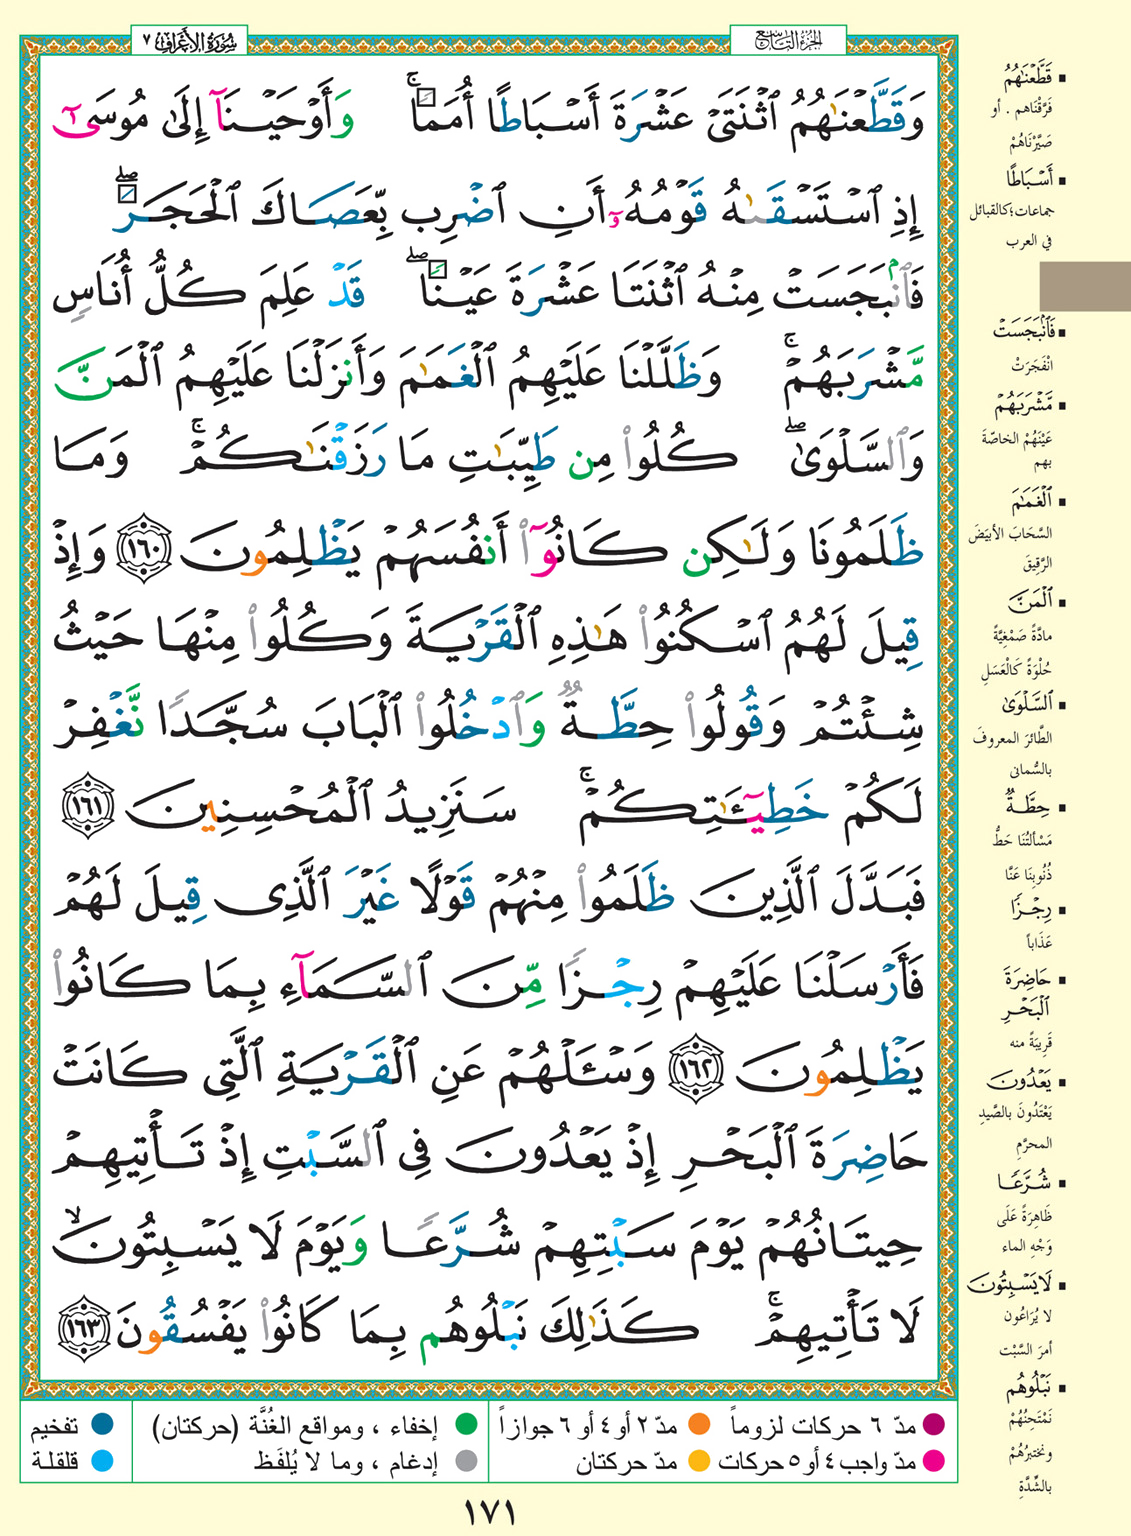 سُورَةُ الأَعۡرَافِ ٧
الجُزۡءُ التَّاسِعُ
وَقَطَّعۡنَٰهُمُ ٱثۡنَتَيۡ عَشۡرَةَ أَسۡبَاطًا أُمَمٗاۚ وَأَوۡحَيۡنَآ إِلَىٰ مُوسَىٰٓ
إِذِ ٱسۡتَسۡقَىٰهُ قَوۡمُهُۥٓ أَنِ ٱضۡرِب بِّعَصَاكَ ٱلۡحَجَرَۖ
فَٱنۢبَجَسَتۡ مِنۡهُ ٱثۡنَتَا عَشۡرَةَ عَيۡنٗاۖ قَدۡ عَلِمَ كُلُّ أُنَاسٖ
مَّشۡرَبَهُمۡۚ وَظَلَّلۡنَا عَلَيۡهِمُ ٱلۡغَمَٰمَ وَأَنزَلۡنَا عَلَيۡهِمُ ٱلۡمَنَّ
وَٱلسَّلۡوَىٰۖ كُلُواْ مِن طَيِّبَٰتِ مَا رَزَقۡنَٰكُمۡۚ وَمَا
ظَلَمُونَا وَلَٰكِن كَانُوٓاْ أَنفُسَهُمۡ يَظۡلِمُونَ ١٦٠ وَإِذۡ
قِيلَ لَهُمُ ٱسۡكُنُواْ هَٰذِهِ ٱلۡقَرۡيَةَ وَكُلُواْ مِنۡهَا حَيۡثُ
شِئۡتُمۡ وَقُولُواْ حِطَّةٞ وَٱدۡخُلُواْ ٱلۡبَابَ سُجَّدٗا نَّغۡفِرۡ
لَكُمۡ خَطِيٓـَٰٔتِكُمۡۚ سَنَزِيدُ ٱلۡمُحۡسِنِينَ ١٦١
فَبَدَّلَ ٱلَّذِينَ ظَلَمُواْ مِنۡهُمۡ قَوۡلًا غَيۡرَ ٱلَّذِي قِيلَ لَهُمۡ
فَأَرۡسَلۡنَا عَلَيۡهِمۡ رِجۡزٗا مِّنَ ٱلسَّمَآءِ بِمَا كَانُواْ
يَظۡلِمُونَ ١٦٢ وَسۡـَٔلۡهُمۡ عَنِ ٱلۡقَرۡيَةِ ٱلَّتِي كَانَتۡ
حَاضِرَةَ ٱلۡبَحۡرِ إِذۡ يَعۡدُونَ فِي ٱلسَّبۡتِ إِذۡ تَأۡتِيهِمۡ
حِيتَانُهُمۡ يَوۡمَ سَبۡتِهِمۡ شُرَّعٗا وَيَوۡمَ لَا يَسۡبِتُونَۙ
لَا تَأۡتِيهِمۡۚ كَذَٰلِكَ نَبۡلُوهُم بِمَا كَانُواْ يَفۡسُقُونَ ١٦٣
▪ قَطَّعۡنَٰهُمُ
فَرَّقْنَاهم . أو
صَيَّرْنَاهُمْ
▪ أَسۡبَاطًا
جماعات؛كالقبائل
في العرب
▪ فَٱنۢبَجَسَتۡ
انْفَجَرَتْ
▪ مَّشۡرَبَهُمۡ
عَيْنَهُمْ الخاصّةَ
بهم
▪ ٱلۡغَمَٰمَ
السَّحَابَ الأبيَضَ
الرَّقِيقَ
▪ ٱلۡمَنَّ
مادَّةً صَمْغِيَّةً
حُلْوَةً كَالْعَسَلِ
▪ ٱلسَّلۡوَىٰ
الطَّائرَ المعروفَ
بالسُّمانى
▪ حِطَّةٞ
مَسْألتُنَا حَطُّ
ذُنُوبِنَا عَنَّا
▪ رِجۡزٗا
عَذَاباً
▪ حَاضِرَةَ
ٱلۡبَحۡرِ
قَرِيبَةً منه
▪ يَعۡدُونَ
يَعْتَدُونَ بالصَّيدِ
المحرَّمِ
▪ شُرَّعٗا
ظَاهِرَةً عَلَى
وَجْهِ الماء
▪ لَا يَسۡبِتُونَ
لا يُرَاعُون
أمرَ السَّبْت
▪ نَبۡلُوهُم
نَمْتَحِنُهُمْ
ونختبرُهُمْ
بالشِّدَّةِ
مدّ ٦ حركات لزوماً مدّ ٢ أو ٤ أو ٦ جوازاً إخفاء ، ومواقع الغُنَّة (حركتان) تفخيم
مدّ واجب ٤ أو ٥ حركات مدّ حركتان إدغام ، وما لا يُلفَظ قلقلة
١٧١